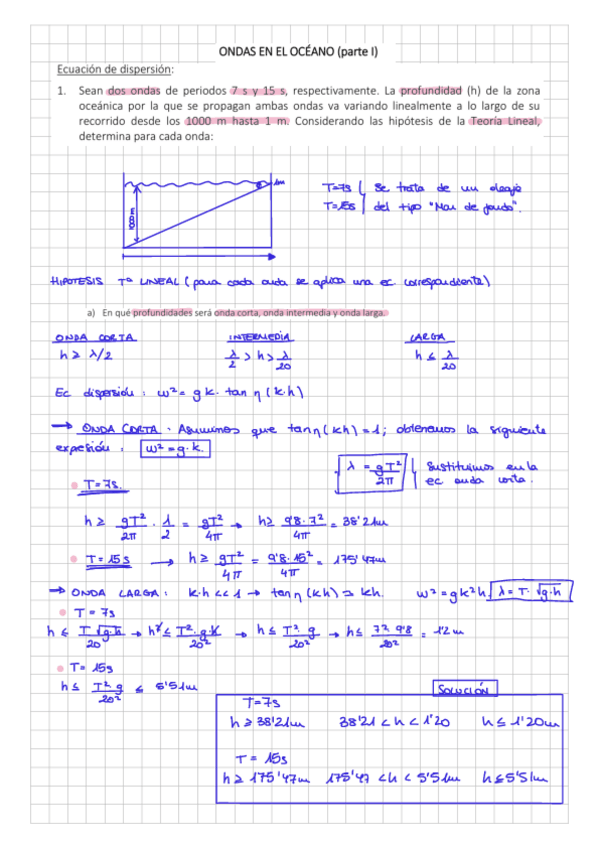 ONDAS EN EL OCÉANO (parte I)
Ecuación de dispersión:
1. Sean dos ondas de periodos 7 s y 15 s, respectivamente. La profundidad (h) de la zona
oceánica por la que se propagan ambas ondas va variando linealmente a lo largo de su
recorrido desde los 1000 m hasta 1 m. Considerando las hipótesis de la Teoría Lineal,
determina para cada onda:
1m
T=7s
T=15s
Se trata de un oleaje
del tipo "Mar de fondo".
HIPOTESIS Tª LINEAL (para cada onda se aplica una ec correspondiente)
a) En qué profundidades será onda corta, onda intermedia y onda larga.
ONDA CORTA INTERMEDIA LARGA
h ≥ λ/2 λ/2 > h > λ/20 h ≤ λ/20
Ec dispersión : ω² = g k · tan η (k·h)
→ ONDA CORTA · Asumimos que tan η (kh) = 1 ; obtenemos la siguiente
expresión : ω² = g·k.
λ = gT²/2π Sustituimos en la
ec onda corta.
• T = 7s.
h ≥ gT²/2π · 1/2 = gT²/4π → h ≥ 9'8·7²/4π = 38'21m
• T = 15s → h ≥ gT²/4π = 9'8·15²/4π = 175'47m
→ ONDA LARGA : k·h << 1 → tan η (kh) = kh. ω² = gk²h. λ = T·√g·h
• T = 7s
h ≤ T√g·h/20 → h² ≤ T²·g·h/20² → h ≤ T²·g/20² → h ≤ 7²·9'8/20² = 1'2m
• T = 15s
h ≤ T²·g/20² ≤ 5'51m
SOLUCIÓN
T = 7s
h ≥ 38'21m 38'21 < h < 1'20 h ≤ 1'20m
T = 15s
h ≥ 175'47m 175'47 < h < 5'51m h ≤ 5'51m